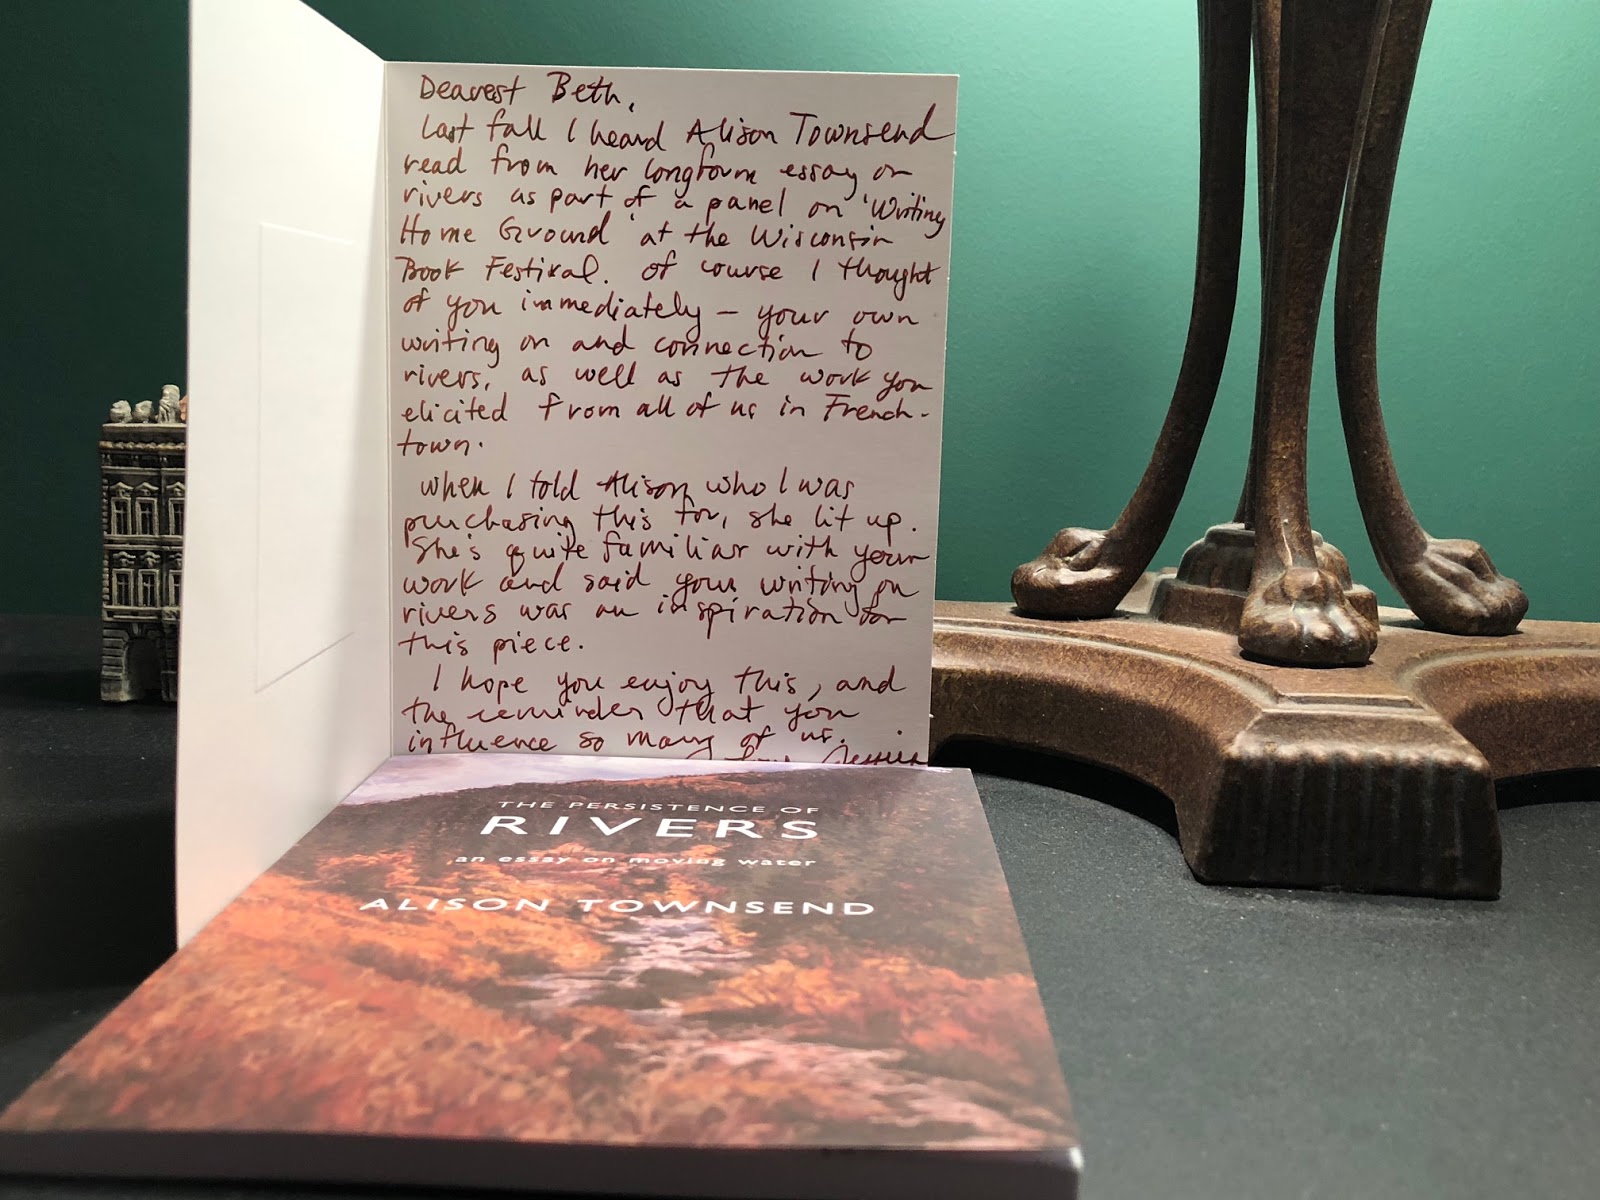 Dearest Beth,
Last fall I heard Alison Townsend
read from her longform essay on
rivers as part of a panel on 'Writing
Home Ground' at the Wisconsin
Book Festival. Of course I thought
of you immediately — your own
writing on and connection to
rivers, as well as the work you
elicited from all of us in French-
town.
When I told Alison who I was
purchasing this for, she lit up.
She's quite familiar with your
work and said your writing on
rivers was an inspiration for
this piece.
I hope you enjoy this, and
the reminder that you
influence so many of us.
THE PERSISTENCE OF
RIVERS
an essay on moving water
ALISON TOWNSEND